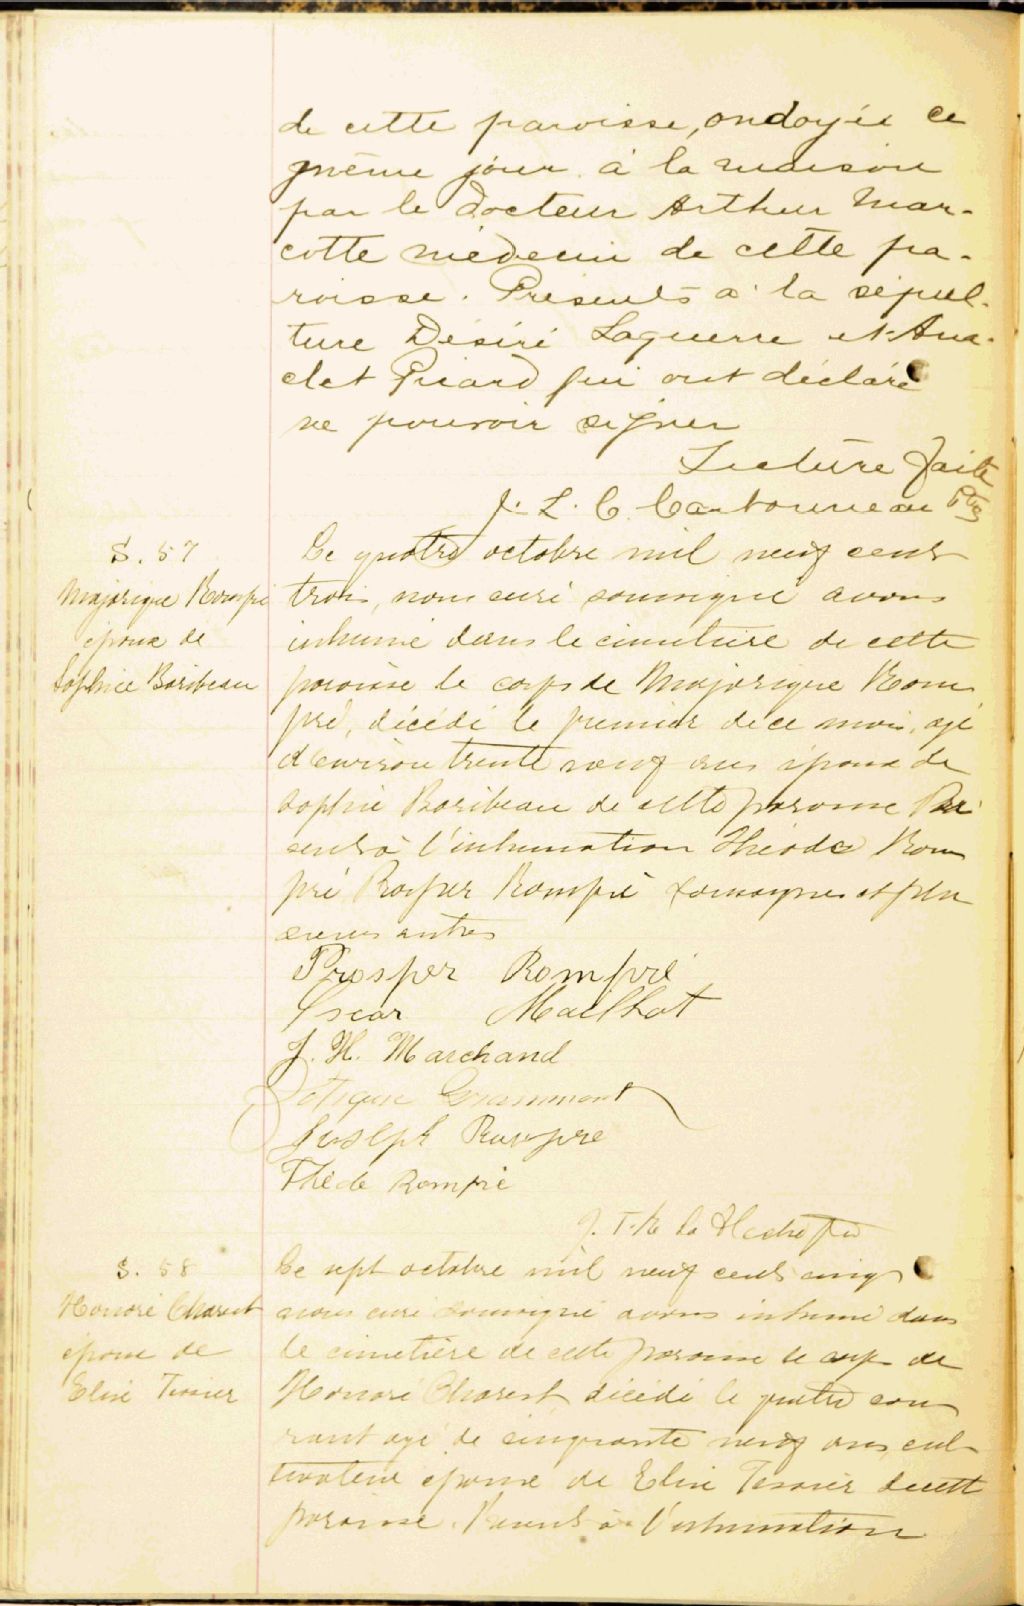 de cette paroisse, ondoyée ce
même jour à la maison
par le docteur Arthur Mar-
cotte médecin de cette pa-
roisse. Présents à la sépul-
ture Désiré Laguerre et Ana-
clet Picard qui ont déclaré
ne pouvoir signer
Lecture faite
J. L. C. Carbonneau Ptre
S. 57
Majorique Rompré
époux de
Sophie Baribeau
Le quatre octobre mil neuf cent
trois, nous curé soussigné avons
inhumé dans le cimetière de cette
paroisse le corps de Majorique Rom
pré, décédé le premier de ce mois, agé
d'environ trente neuf ans époux de
Sophie Baribeau de cette paroisse Pré
sents à l'inhumation Théode Rom
pré Prosper Rompré soussignés et plu
sieurs autres
Prosper Rompré
Oscar Mailhot
J. H. Marchand
Grammont
Joseph Rompre
Théde Rompré
S. 58
Honoré Charest
époux de
Elise Tessier
Le sept octobre mil neuf cent cinq
nous curé soussigné avons inhumé dans
le cimetière de cette paroisse le corps de
Honoré Charest décédé le quatre cou
rant agé de cinquante neuf ans, cul-
tivateur époux de Elise Tessier de cett
paroisse. Présents à l'inhumation